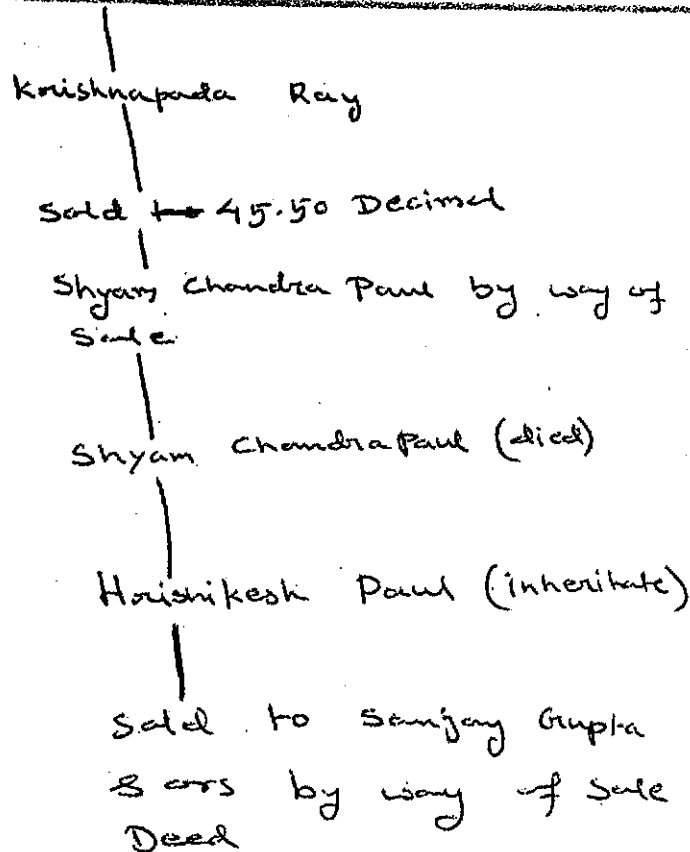 Krishnapada Ray
Sold to 45.50 Decimal
Shyam Chandra Paul by way of
Sale
Shyam Chandra Paul (died)
Hrishikesh Paul (inheritate)
Sold to Sanjay Gupta
& ors by way of Sale
Deed